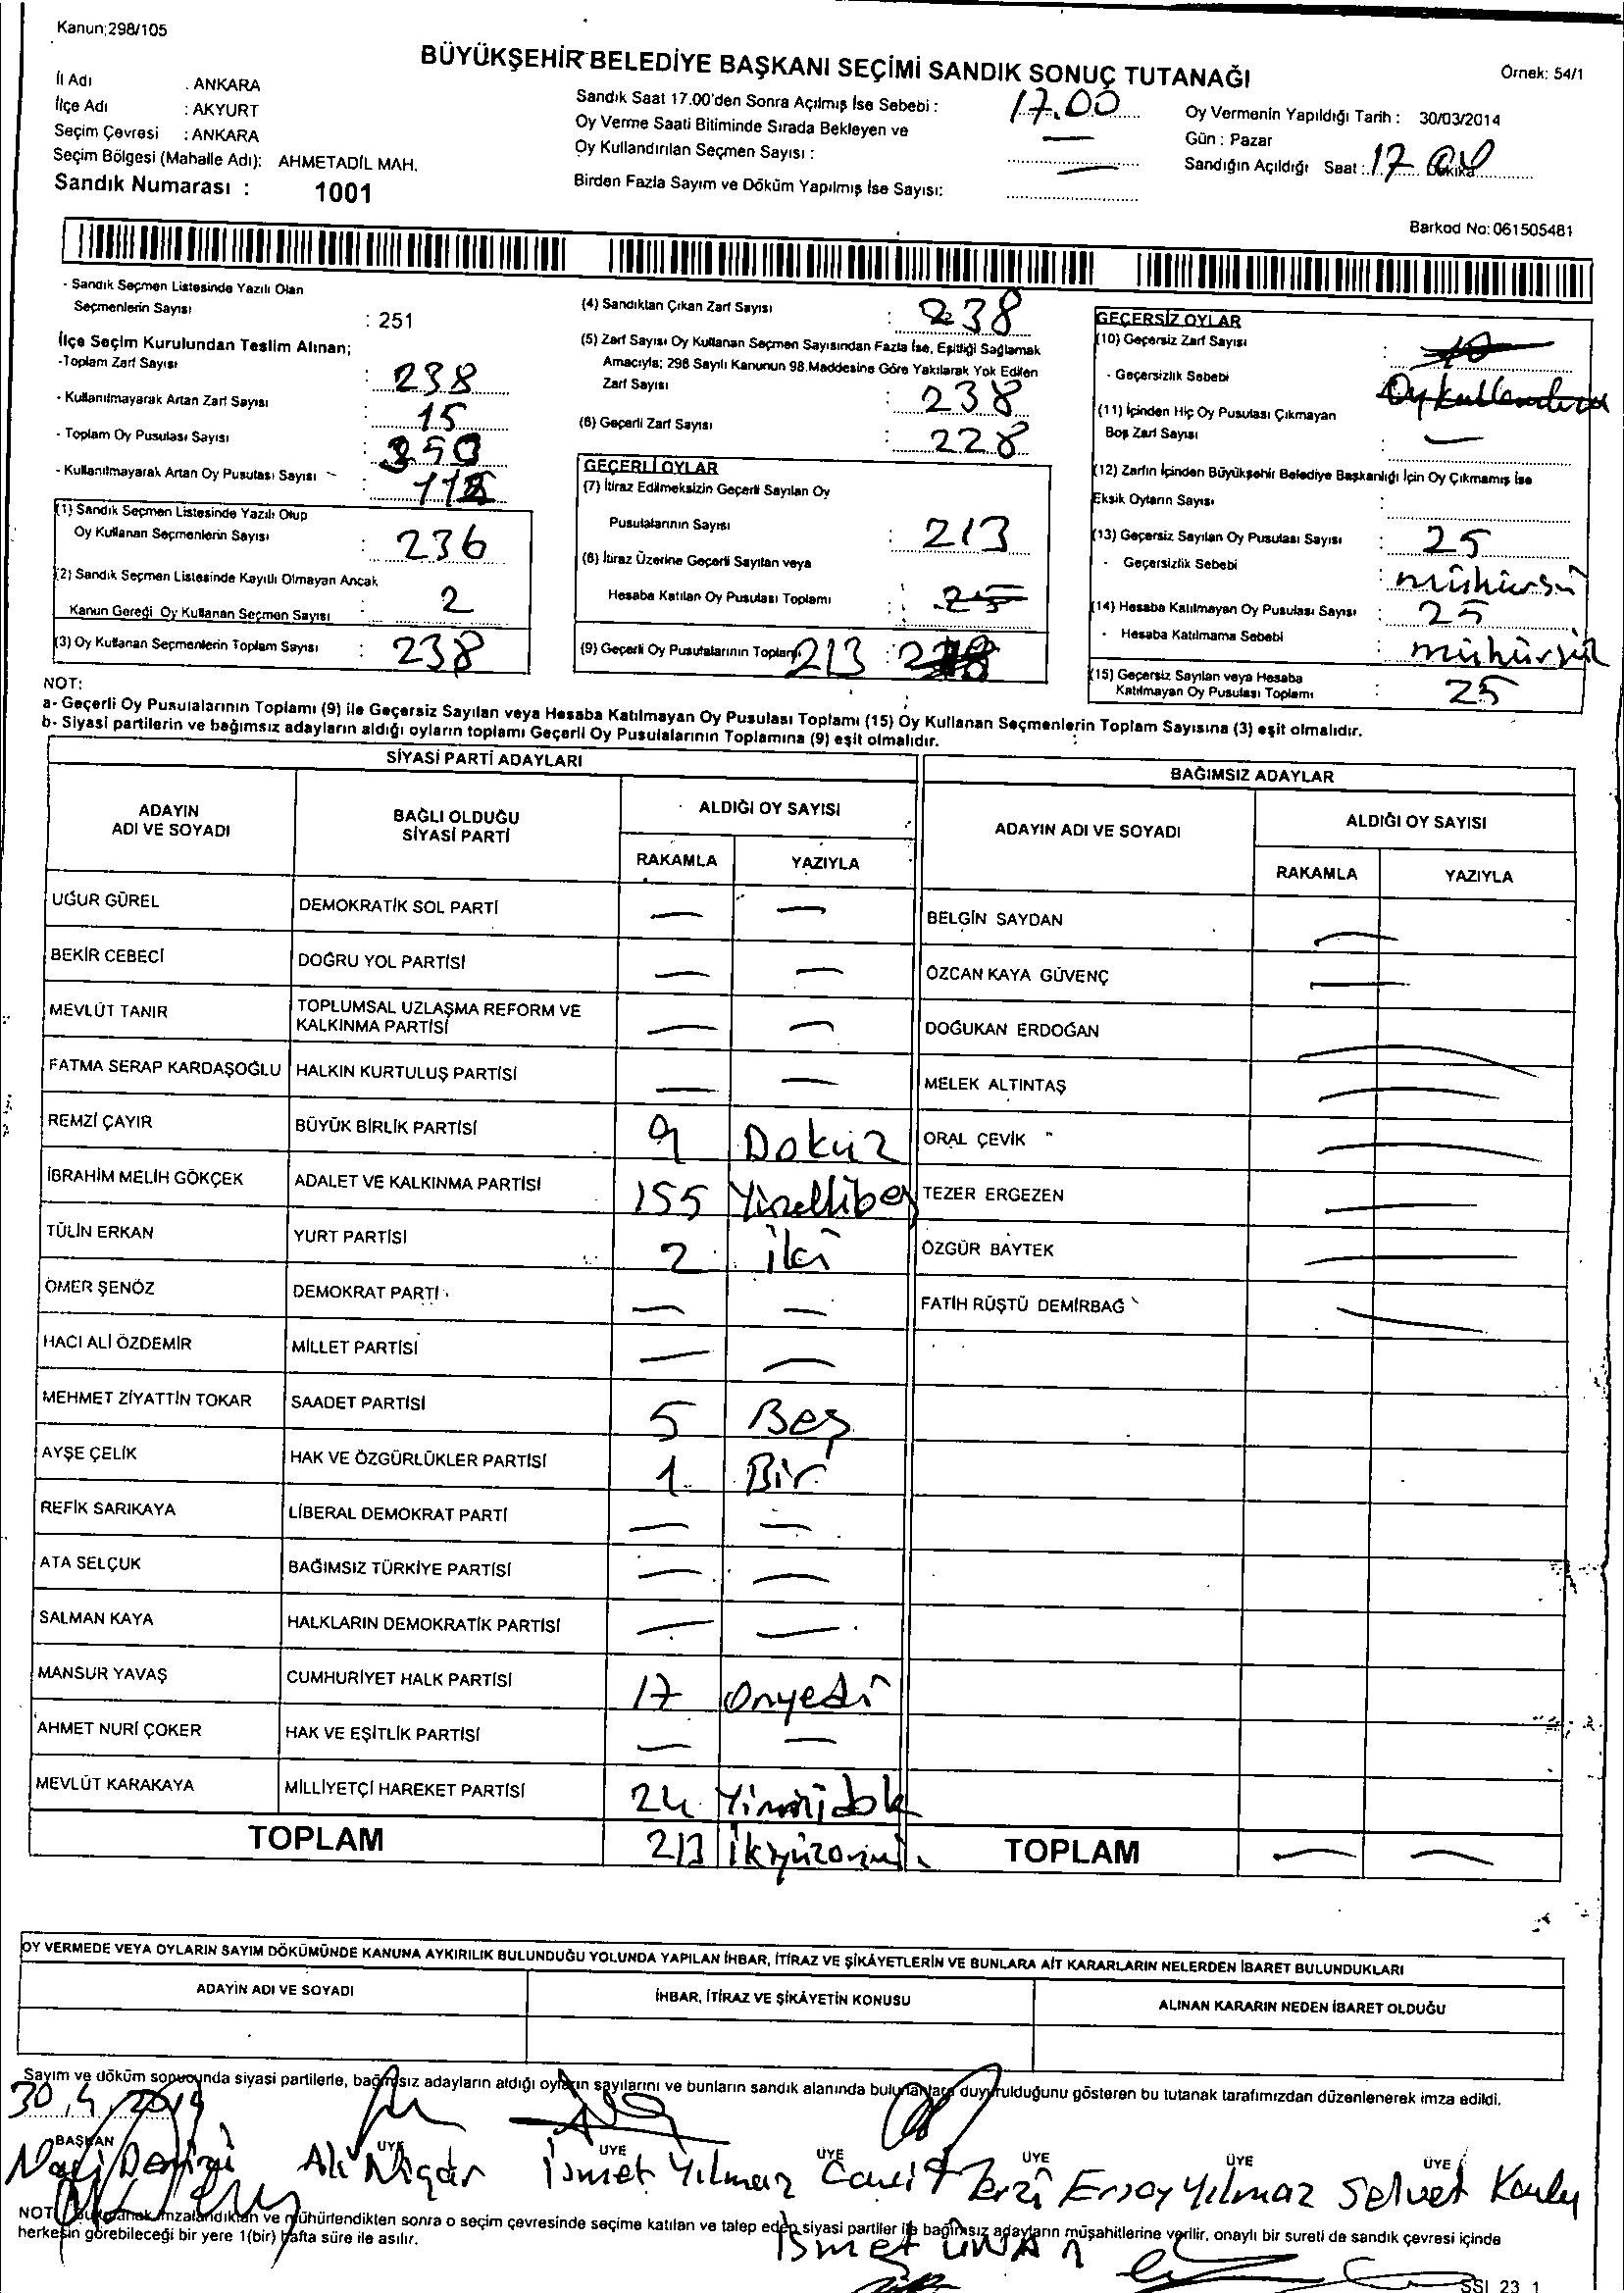 Kanun;298/105
BÜYÜKŞEHİR BELEDİYE BAŞKANI SEÇİMİ SANDIK SONUÇ TUTANAĞI
Örnek: 54/1
İl Adı : ANKARA
İlçe Adı : AKYURT
Seçim Çevresi : ANKARA
Seçim Bölgesi (Mahalle Adı): AHMETADİL MAH.
Sandık Numarası : 1001
Sandık Saat 17.00'den Sonra Açılmış İse Sebebi : 17.00
Oy Verme Saati Bitiminde Sırada Bekleyen ve
Oy Kullandırılan Seçmen Sayısı : —
Birden Fazla Sayım ve Döküm Yapılmış İse Sayısı: —
Oy Vermenin Yapıldığı Tarih : 30/03/2014
Gün : Pazar
Sandığın Açıldığı Saat : 17 Dakika
Barkod No: 061505481
- Sandık Seçmen Listesinde Yazılı Olan
Seçmenlerin Sayısı : 251
İlçe Seçim Kurulundan Teslim Alınan;
-Toplam Zarf Sayısı : 238
- Kullanılmayarak Artan Zarf Sayısı : 15
- Toplam Oy Pusulası Sayısı : 350
- Kullanılmayarak Artan Oy Pusulası Sayısı :
(1) Sandık Seçmen Listesinde Yazılı Olup
Oy Kullanan Seçmenlerin Sayısı : 236
(2) Sandık Seçmen Listesinde Kayıtlı Olmayan Ancak
Kanun Gereği Oy Kullanan Seçmen Sayısı : 2
(3) Oy Kullanan Seçmenlerin Toplam Sayısı : 238
(4) Sandıktan Çıkan Zarf Sayısı : 238
(5) Zarf Sayısı Oy Kullanan Seçmen Sayısından Fazla İse, Eşitliği Sağlamak
Amacıyla; 298 Sayılı Kanunun 98.Maddesine Göre Yakılarak Yok Edilen
Zarf Sayısı : 238
(6) Geçerli Zarf Sayısı : 228
GEÇERLİ OYLAR
(7) İtiraz Edilmeksizin Geçerli Sayılan Oy
Pusulalarının Sayısı : 213
(8) İtiraz Üzerine Geçerli Sayılan veya
Hesaba Katılan Oy Pusulası Toplamı : 25
(9) Geçerli Oy Pusulalarının Toplamı 213 :
GEÇERSİZ OYLAR
(10) Geçersiz Zarf Sayısı : 10
- Geçersizlik Sebebi : Oy kullanılma
(11) İçinden Hiç Oy Pusulası Çıkmayan
Boş Zarf Sayısı : —
(12) Zarfın İçinden Büyükşehir Belediye Başkanlığı İçin Oy Çıkmamış İse
Eksik Oyların Sayısı :
(13) Geçersiz Sayılan Oy Pusulası Sayısı : 25
- Geçersizlik Sebebi : mühürsü
(14) Hesaba Katılmayan Oy Pusulası Sayısı : 25
- Hesaba Katılmama Sebebi : mühürsül
(15) Geçersiz Sayılan veya Hesaba
Katılmayan Oy Pusulası Toplamı : 25
NOT:
a- Geçerli Oy Pusulalarının Toplamı (9) ile Geçersiz Sayılan veya Hesaba Katılmayan Oy Pusulası Toplamı (15) Oy Kullanan Seçmenlerin Toplam Sayısına (3) eşit olmalıdır.
b- Siyasi partilerin ve bağımsız adayların aldığı oyların toplamı Geçerli Oy Pusulalarının Toplamına (9) eşit olmalıdır.
SİYASİ PARTİ ADAYLARI
ADAYIN ADI VE SOYADI BAĞLI OLDUĞU SİYASİ PARTİ ALDIĞI OY SAYISI
RAKAMLA YAZIYLA
UĞUR GÜREL DEMOKRATİK SOL PARTİ — —
BEKİR CEBECİ DOĞRU YOL PARTİSİ — —
MEVLÜT TANIR TOPLUMSAL UZLAŞMA REFORM VE KALKINMA PARTİSİ — —
FATMA SERAP KARDAŞOĞLU HALKIN KURTULUŞ PARTİSİ — —
REMZİ ÇAYIR BÜYÜK BİRLİK PARTİSİ 9 Dokuz
İBRAHİM MELİH GÖKÇEK ADALET VE KALKINMA PARTİSİ 155 Yüzellibeş
TÜLİN ERKAN YURT PARTİSİ 2 iki
ÖMER ŞENÖZ DEMOKRAT PARTİ — —
HACI ALİ ÖZDEMİR MİLLET PARTİSİ — —
MEHMET ZİYATTİN TOKAR SAADET PARTİSİ 5 Beş
AYŞE ÇELİK HAK VE ÖZGÜRLÜKLER PARTİSİ 1 Bir
REFİK SARIKAYA LİBERAL DEMOKRAT PARTİ — —
ATA SELÇUK BAĞIMSIZ TÜRKİYE PARTİSİ — —
SALMAN KAYA HALKLARIN DEMOKRATİK PARTİSİ — —
MANSUR YAVAŞ CUMHURİYET HALK PARTİSİ 17 Onyedi
AHMET NURİ ÇOKER HAK VE EŞİTLİK PARTİSİ — —
MEVLÜT KARAKAYA MİLLİYETÇİ HAREKET PARTİSİ 24
TOPLAM 213
BAĞIMSIZ ADAYLAR
ADAYIN ADI VE SOYADI ALDIĞI OY SAYISI
RAKAMLA YAZIYLA
BELGİN SAYDAN —
ÖZCAN KAYA GÜVENÇ —
DOĞUKAN ERDOĞAN —
MELEK ALTINTAŞ —
ORAL ÇEVİK —
TEZER ERGEZEN —
ÖZGÜR BAYTEK —
FATİH RÜŞTÜ DEMİRBAĞ —
TOPLAM — —
OY VERMEDE VEYA OYLARIN SAYIM DÖKÜMÜNDE KANUNA AYKIRILIK BULUNDUĞU YOLUNDA YAPILAN İHBAR, İTİRAZ VE ŞİKÂYETLERİN VE BUNLARA AİT KARARLARIN NELERDEN İBARET BULUNDUKLARI
ADAYIN ADI VE SOYADI İHBAR, İTİRAZ VE ŞİKÂYETİN KONUSU ALINAN KARARIN NEDEN İBARET OLDUĞU
Sayım ve döküm sonucunda siyasi partilerle, bağımsız adayların aldığı oyların sayılarını ve bunların sandık alanında bulunanlara duyurulduğunu gösteren bu tutanak tarafımızdan düzenlenerek imza edildi.
30.4.2014
BAŞKAN ÜYE ÜYE ÜYE ÜYE ÜYE ÜYE
Ali İsmet Yılmaz Cavit Terzi Ersoy Yılmaz Selvet
NOT: Bu tutanak imzalandıktan ve mühürlendikten sonra o seçim çevresinde seçime katılan ve talep eden siyasi partiler ile bağımsız adayların müşahitlerine verilir, onaylı bir sureti de sandık çevresi içinde
herkesin görebileceği bir yere 1(bir) hafta süre ile asılır.
İsmet ÜNAN
SSI 23 1